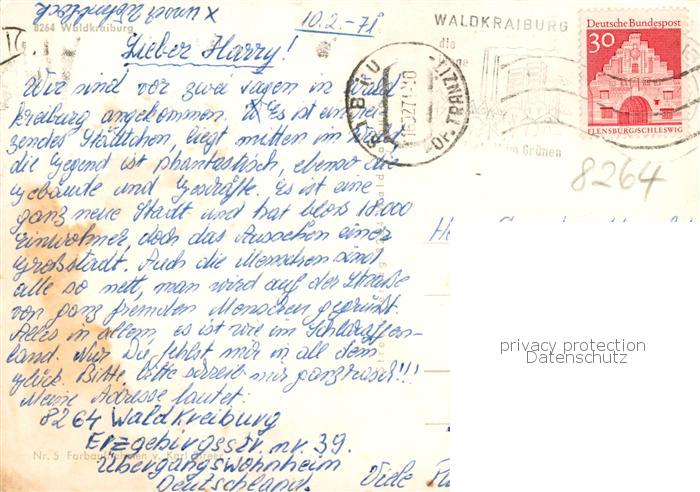 8264 Waldkraiburg
10.2.-71
Lieber Harry!
Wir sind vor zwei Tagen in Wald
kreiburg angekommen. Es ist ein rei-
zendes Städtchen, liegt mitten im Wald,
die Gegend ist phantastisch, ebenso die
Gebäute und Geschäfte. Es ist eine
ganz neue Stadt und hat blois 18.000
Einwohner, doch das Aussehen einer
Großstadt. Auch die Menschen sind
alle so nett, man wird auf der Straße
von ganz fremden Menschen gegrüßt.
Alles in allem, es ist wie im Schlaraffen-
land. Nur Du fehlst mir in all dem
Glück. Bitte, bitte schreib mir ganz rasch!!!
Meine Adresse lautet:
8264 Waldkreiburg
Erzgebirgsstr. nr. 39.
Übergangswohnheim
Deutschland.
Viele
Nr. 5 Farbaufnahmen v. Karl
WALDKRAIBURG
die
im Grünen
Deutsche Bundespost
30
FLENSBURG/SCHLESWIG
8264
privacy protection
Datenschutz